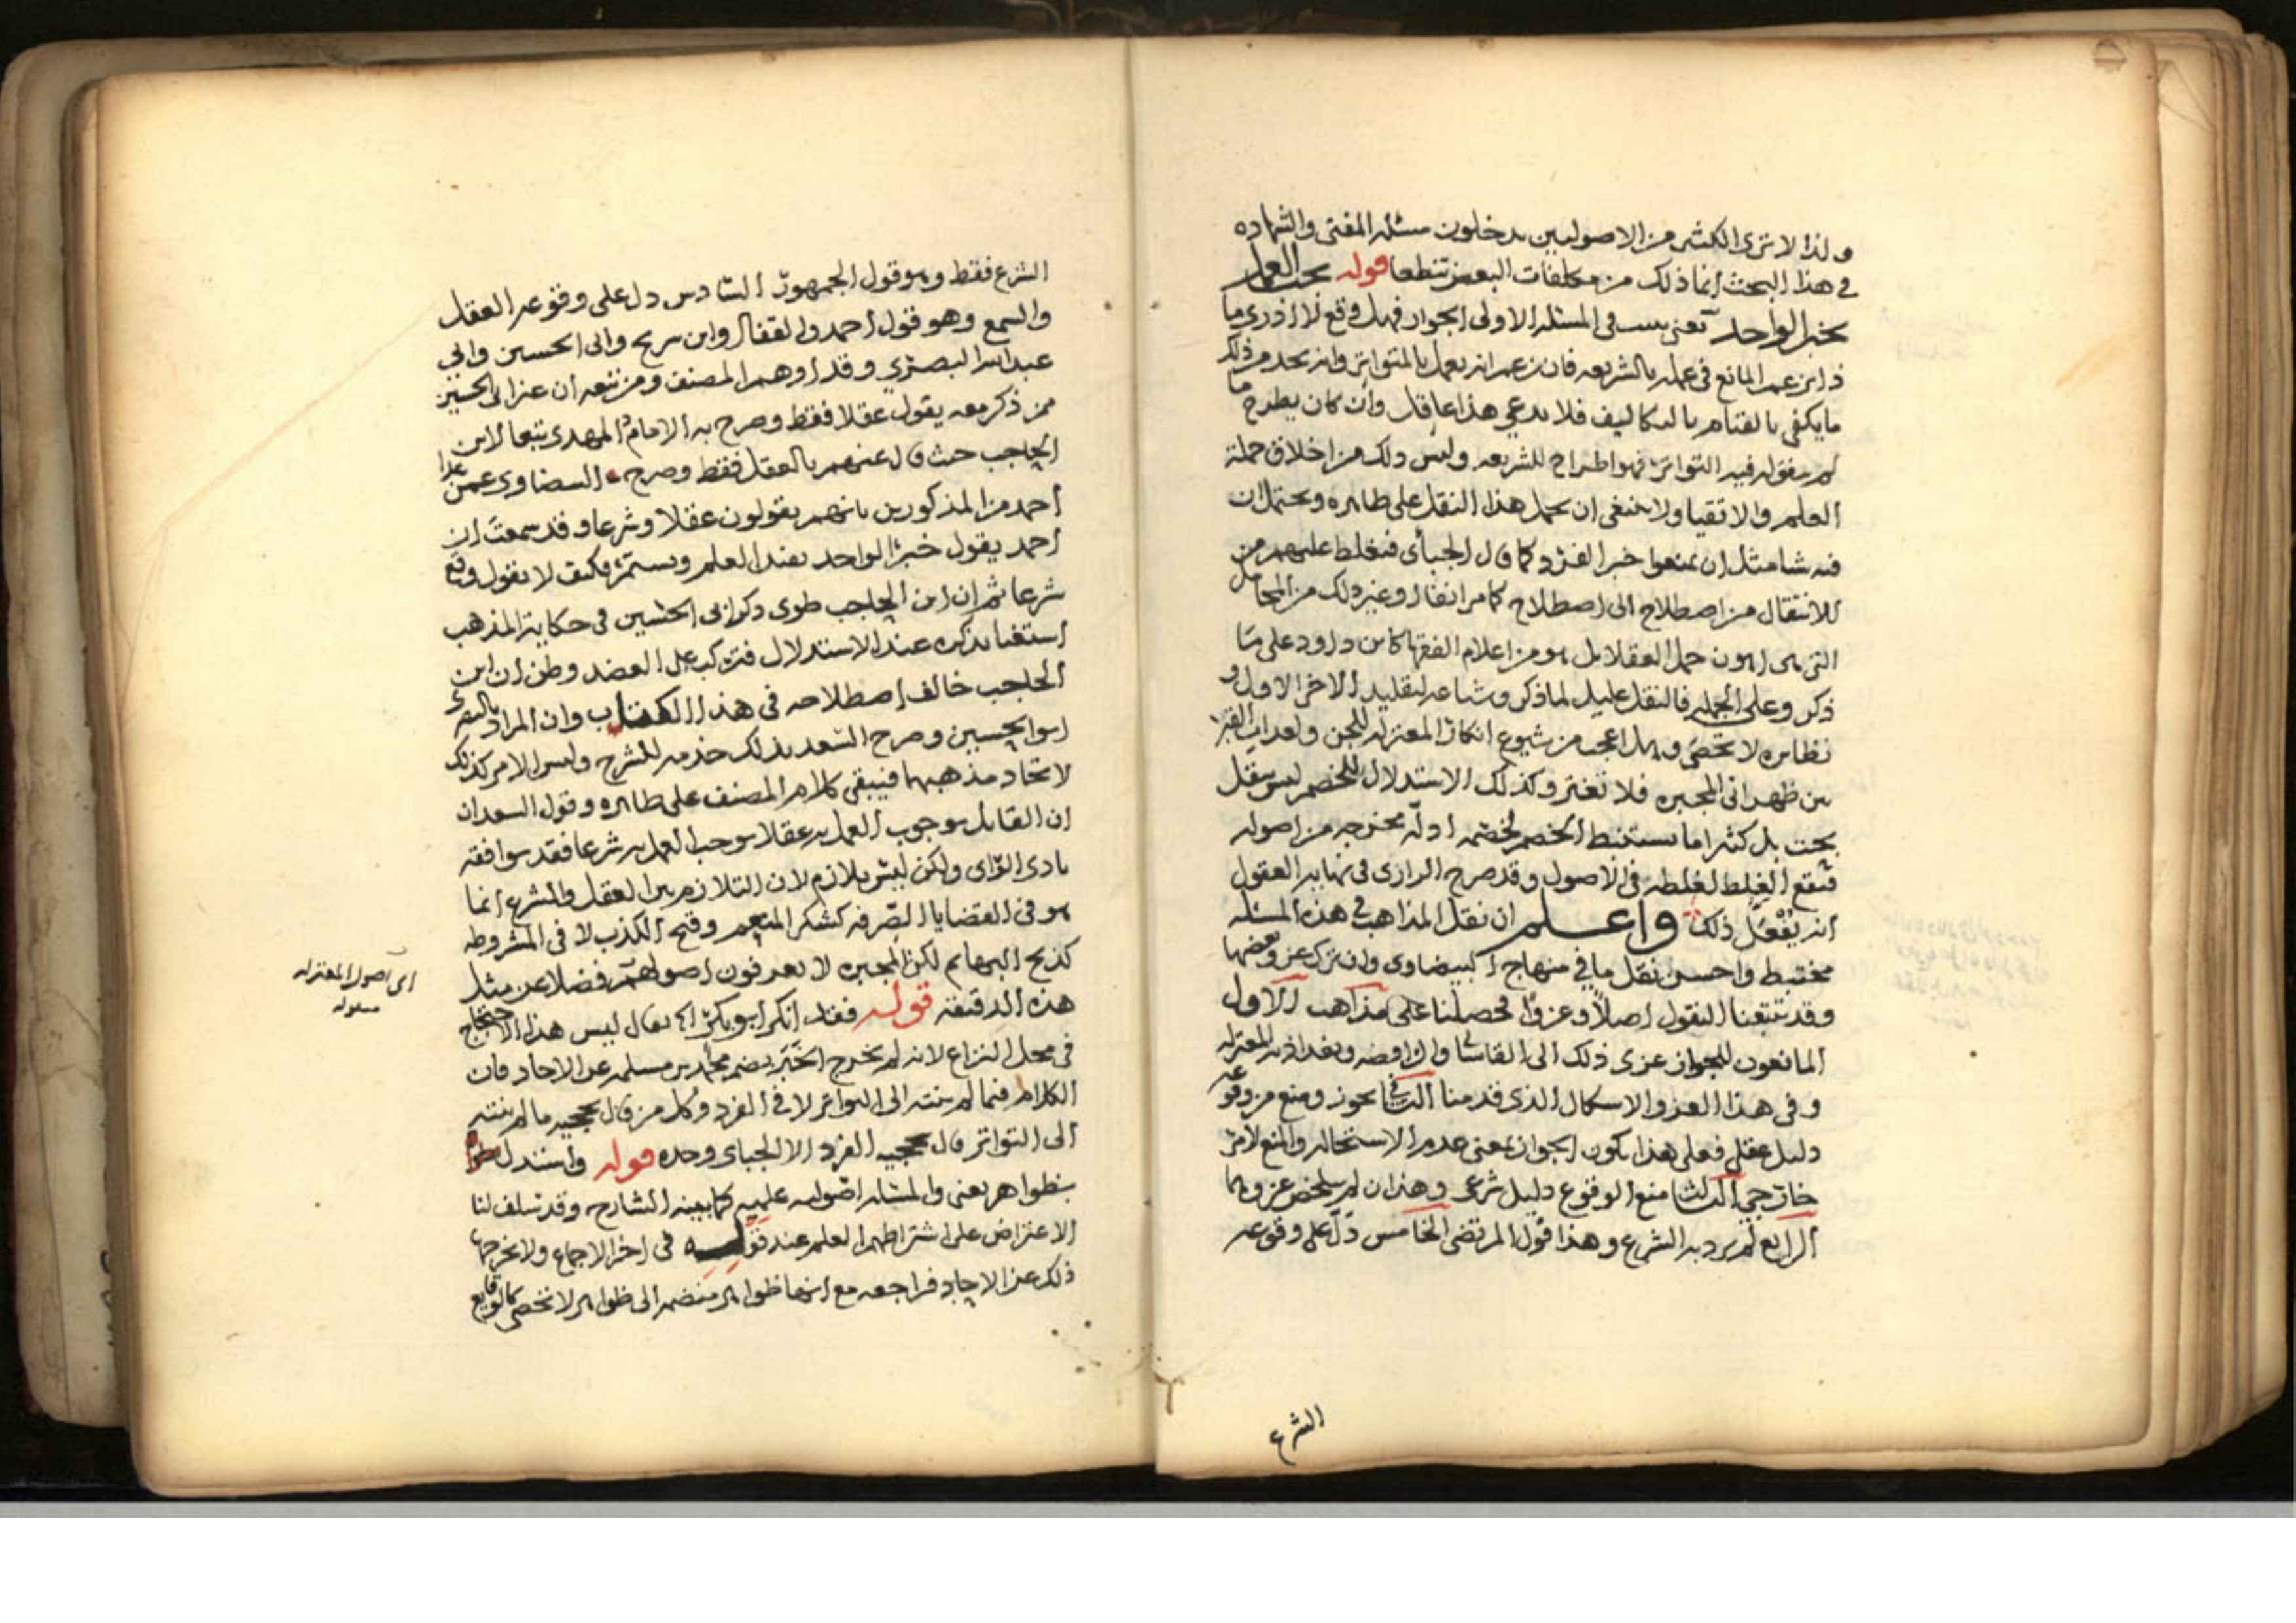 ولذا لا ترى الكثير من الاصوليين يدخلون مسئلة المفتى والشهاده
في هذا البحث انما ذلك من مكلفات البعض تنطعا قوله يجب العمل
بخبر الواحد يعنى في المسئله الاولى الجواز فهل وقع لا ادرى ما
ذا يزعم المانع في عمله بالشريعه فان زعم انه يعمل بالمتواتر وانه يجد من ذلك
ما يكفى بالقيام بالتكاليف فلا يدعي هذا عاقل وان كان يطرح ما
لم فيه التواتر فهو اطراح للشريعه وليس ذلك من اخلاق حملة
العلم والاتقيا ولا ينبغى ان يحمل هذا النقل على ظاهره ويحتمل ان
فيه شيا مثل ان يمنعوا خبر الفرد كما قال الجبأى فيغلط عليهم من
للانتقال من اصطلاح الى اصطلاح كما مر انفا او غير ذلك من المحامل
التى هى اهون حمل العقلا بل هو من اعلام الفقها كابن داود على ما
ذكر وعلى الجمله فالنقل عليل لما ذكر وشاعه لتقليد الاخر الاول و
نظايره لا تحصى وهل اعجب من شيوع انكار المعتزله للجن ولعذاب القبر
بين ظهرانى المجبره فلا تغتر وكذلك الاستدلال للخصم ليس بنقل
بحت بل كثيرا ما يستنبط الخصم لخصمه ادلة مخرجه من اصوله
فيقع الغلط لغلطه فى الاصول وقد صرح الرازى فى نهايه العقول
انه يفعل ذلك واعلم ان نقل المذاهب في هذه المسئله
مختبط واحسن نقل ما في منهاج البيضاوى وان ترك عزو بعضها
وقد تتبعنا النقول اصلا وعزوا فحصلنا على مذاهب الاول
المانعون للجواز عزى ذلك الى القاسانى والرافضه وبغداذيه المعتزله
وفى هذا العزو الاشكال الذى قدمنا الثانى يجوز ومنع من وقوعه
دليل عقلي فعلى هذا يكون الجواز بمعنى عدم الاستحاله والمنع لامر
خارجي الثالث منع الوقوع دليل شرعى وهذان لم يتلخص عزوهما
الرابع لم يرد به الشرع وهذا قول المرتضى الخامس دل على وقوعه
الشرع
الشرع فقط وهو قول الجمهور السادس دل على وقوعه العقل
والسمع وهو قول احمد والقفال وابن سريح وابى الحسين وابى
عبدالله البصرى وقد اوهم المصنف ومن تبعه ان عزا لى الحسين
ممن ذكر معه يقول عقلا فقط وصرح به الامام المهدى تبعا لابن
الحاجب حيث قال عنهم بالعقل فقط وصرح البيضاوى عمن عدا
احمد من المذكورين بانهم يقولون عقلا وشرعا وقد سمعت ان
احمد يقول خبر الواحد يفيد العلم ويستمر فكيف لا يقول وقع
شرعا ثم ان ابن الحاجب طوى ذكر ابى الحسين فى حكاية المذهب
استغنا بذكره عند الاستدلال فتركب على العضد وظن ان ابن
الحاجب خالف اصطلاحه فى هذا الكتاب وان المراد بالبصرى
ابو الحسين وصرح السعد بذلك خدمه للشرح وليس الامر كذلك
لاتحاد مذهبهما فيبقى كلام المصنف على ظاهره وقول السعد ان
ان القايل بوجوب العمل به عقلا يوجب العمل به شرعا فقد يوافقه
بادى الراى ولكن ليس بلازم لان التلازم بين العقل والشرع انما
هو فى القضايا الصرفه كشكر المنعم وقبح الكذب لا فى المشروطه
كذبح البهايم لكن المجبره لا يعرفون اصولهم فضلا عن مثل
هذه الدقيقه قوله فقد انكر ابو بكر الخ يقال ليس هذا الاحتجاج
فى محل النزاع لانه لم يخرج الخبر بضم محمد بن مسلمه عن الاحاد فان
الكلام فيما لم ينته الى التواتر لا فى الفرد وكل من قال بحجيه ما لم ينته
الى التواتر قال بحجيه الفرد الا الجباى وحده قوله واستدل
بظواهر يعنى والمسئله اصوليه علميه كما يبينه الشارح وقد سلف لنا
الاعتراض على اشتراطهم العلم عند قوله فى اخر الاجماع ولا يخرجها
ذلك عن الاحاد فراجعه مع انها ظواهر منضمه الى ظواهر لا تحصى كالوقايع
اى اصول المعتزله